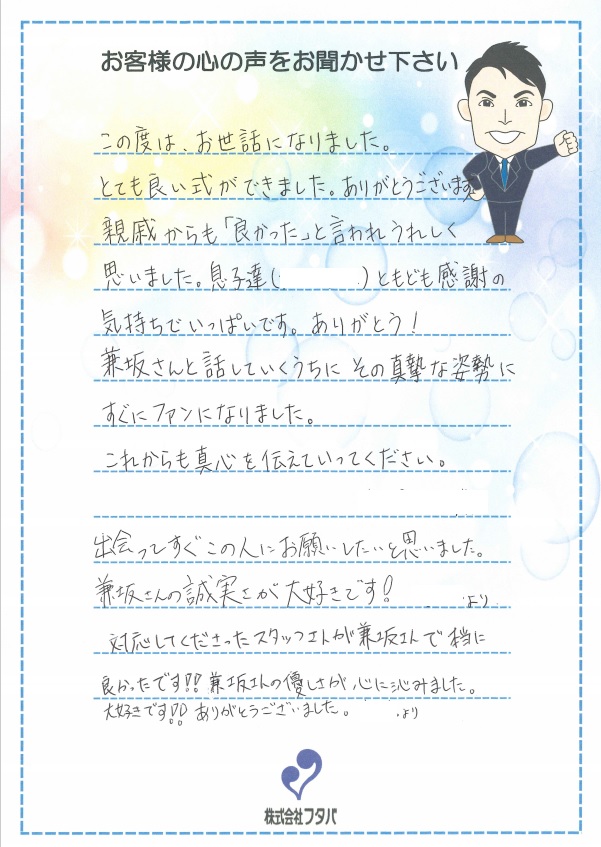 お客様の心の声をお聞かせ下さい
この度は、お世話になりました。
とても良い式ができました。ありがとうございます
親戚からも「良かった」と言われうれしく
思いました。息子達( )ともども感謝の
気持ちでいっぱいです。ありがとう!
兼坂さんと話していくうちに その真摯な姿勢に
すぐにファンになりました。
これからも真心を伝えていってください。
出会ってすぐこの人にお願いしたいと思いました。
兼坂さんの誠実さが大好きです!
より
対応してくださったスタッフさんが兼坂さんで本当に
良かったです!!兼坂さんの優しさが、心に沁みました。
大好きです!!ありがとうございました。
より
株式会社フタバ